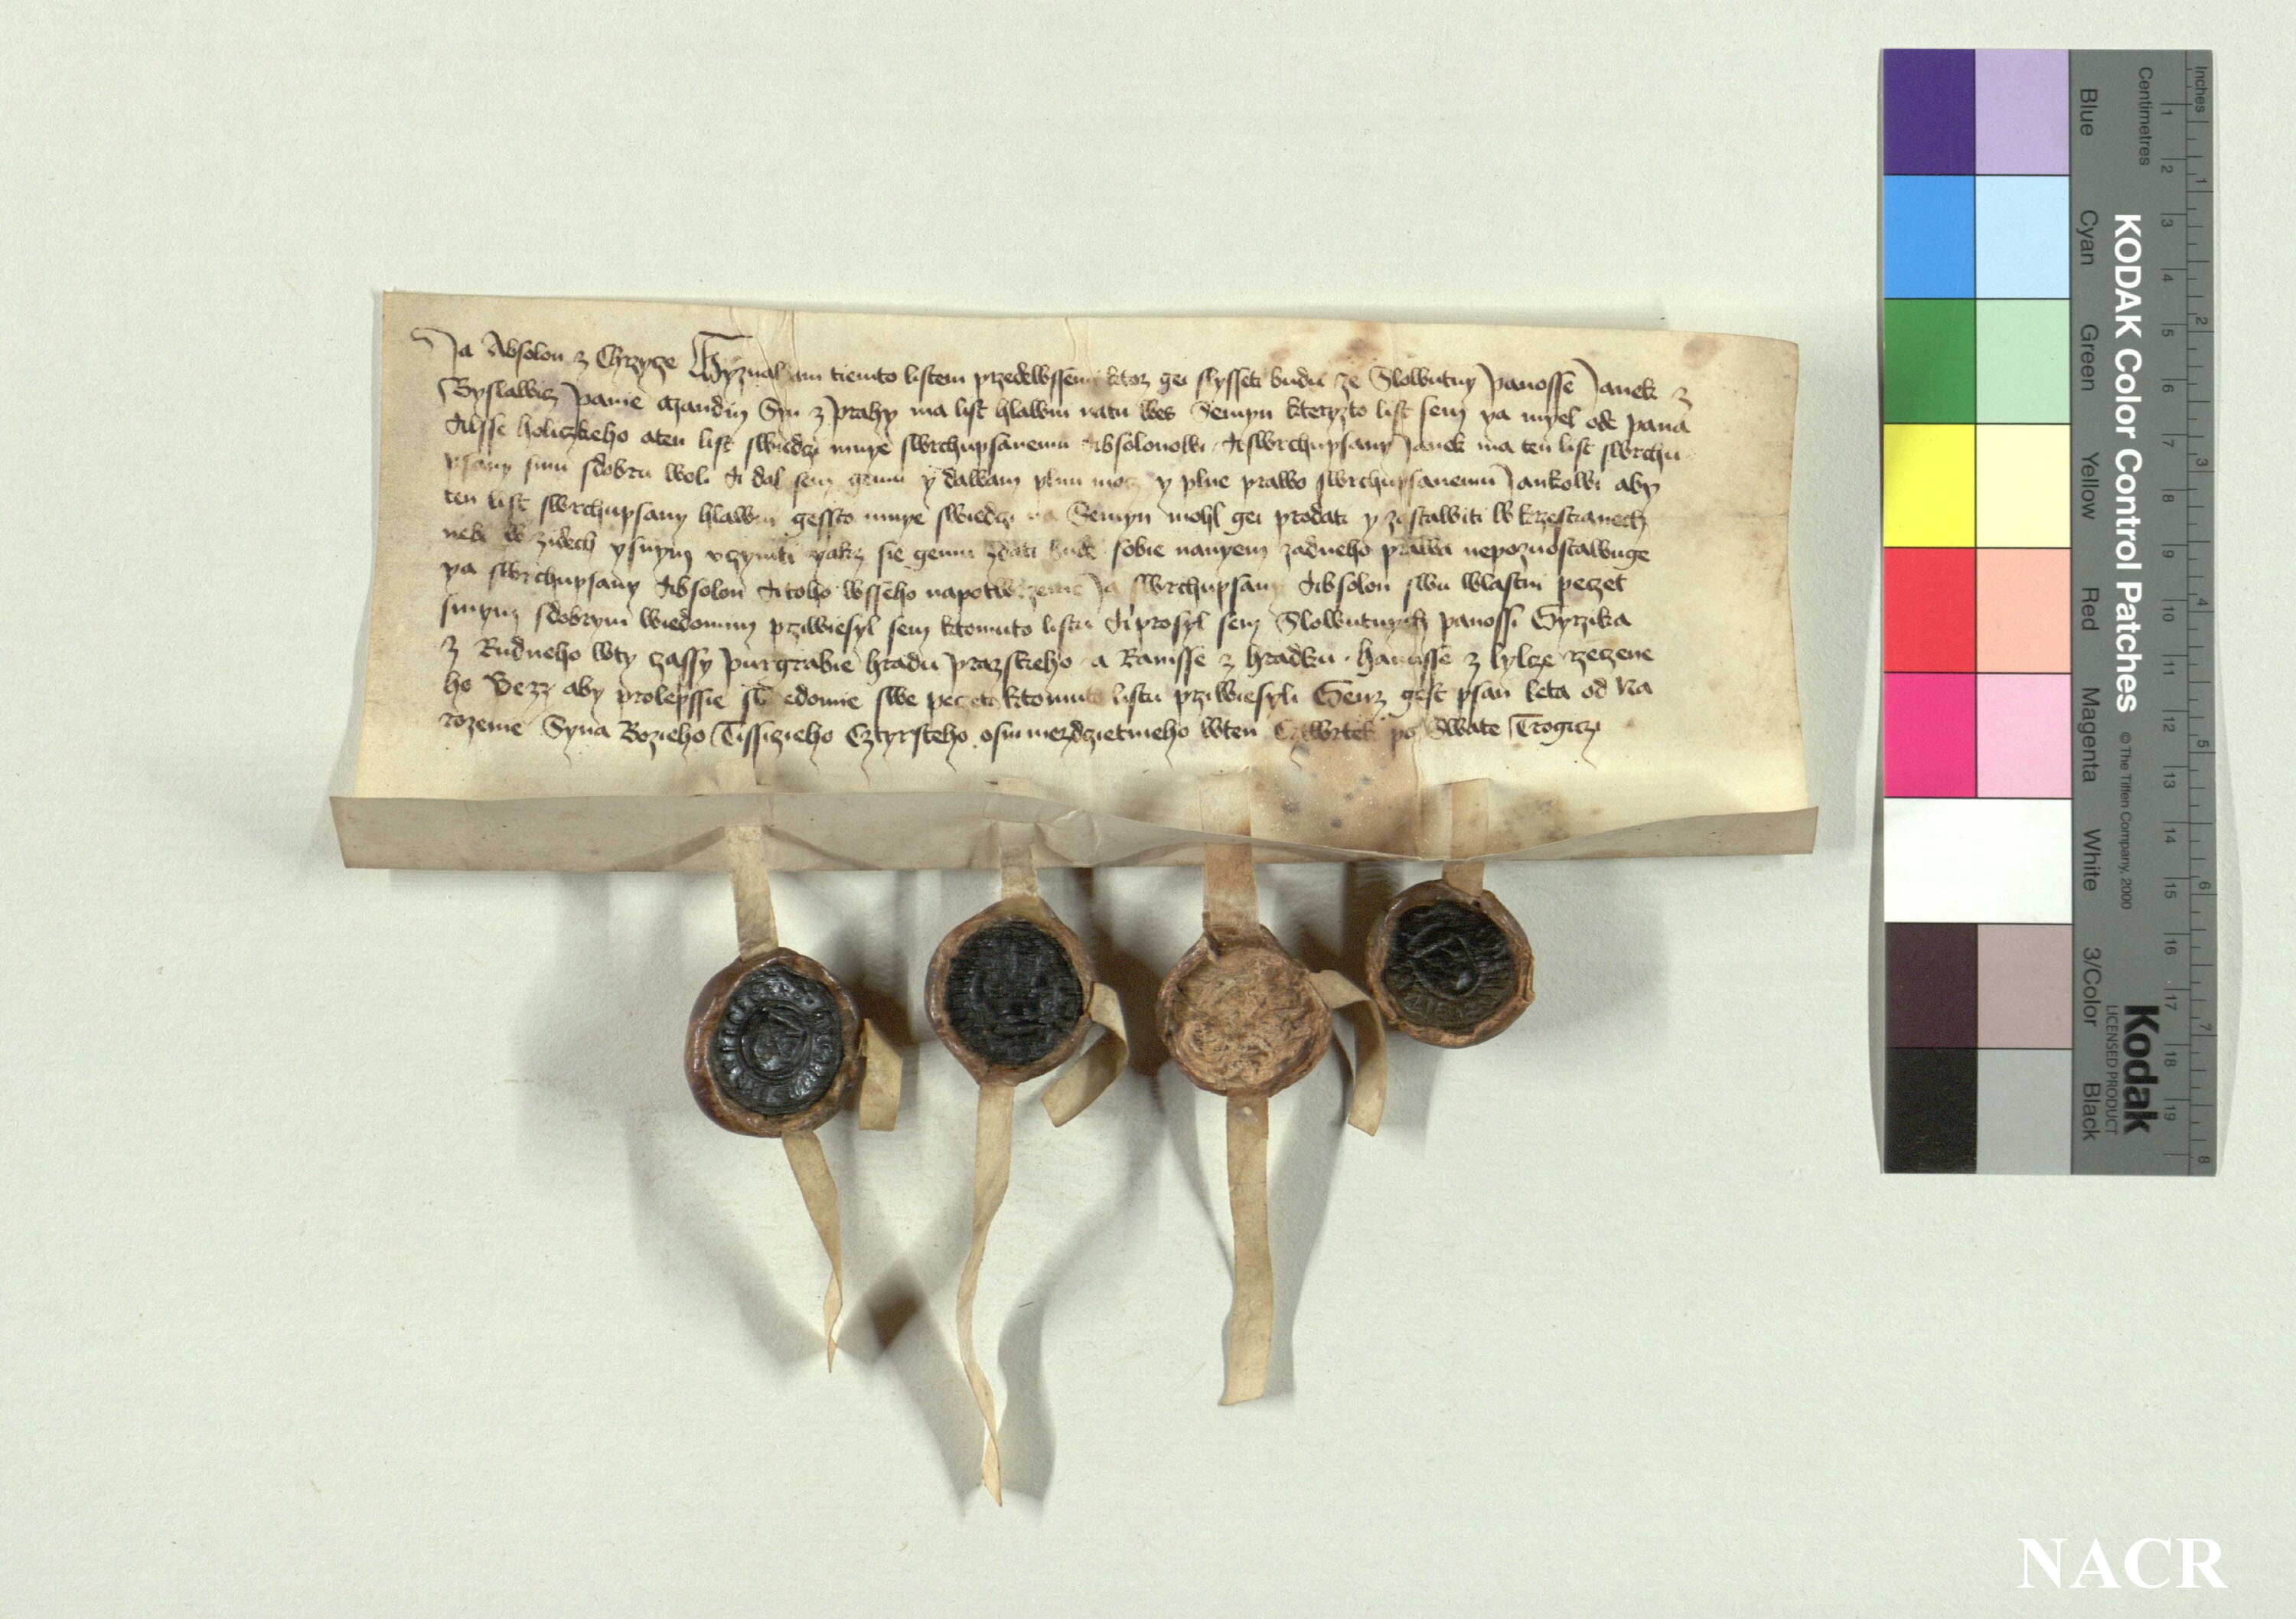 Ja Absolon z Chrzycze Wyznawam tiemto listem przedewssemi ktoz gei slysseti budu ze Slowutny panosse Janek z
Byslawicz panie Czandin Syn z prahy ma list hlawni natu wes Semyn kteryzto list sem ya myel ode pana
Alsse holiczkeho aten list swiedczi mnye swrchupsanemu Absolonowi A swrchupsany Janek ma ten list swrchu
psany smu sdobru woli A dal sem gemu y dawam plnu mocz y plne prawo swrchupsanemu Jankowi aby
ten list swrchupsany hlawni gessto mnye swiedczi na Semyn mohl gei prodati y zastawiti w krzestianech
neb w zidech y snym vczyniti yakz sie gemu zdati bude sobie nanyem zadneho prawa nepozuostawuge
ya swrchupsany Absolon A toho wsseho napotwrzenie Ja swrchupsany Absolon swu wlastni peczet
smym sdobrym wiedomim prziwiesyl sem ktomuto listu A prosyl sem Slowutnych panossi Gyrzika
z Rudneho wty czassy purgrabie hradu prazskeho a Ramsse z hradku hanusse z lylcze rzeczene
ho Bezz aby prolepssie swiedomie swe peczeti ktomuto listu prziwiesyli Genz gest psan leta od Na
rozenie Syna Bozieho Tissiczieho Cztyrsteho osmmezdczietmeho wten Cztwrtek po Swate Trogiczi
KODAK Color Control Patches
© The Tiffen Company, 2000
Kodak
LICENSED PRODUCT
Inches
1 2 3 4 5 6 7 8
Centimetres
1 2 3 4 5 6 7 8 9 10 11 12 13 14 15 16 17 18 19
Blue
Cyan
Green
Yellow
Red
Magenta
White
3/Color
Black
NACR